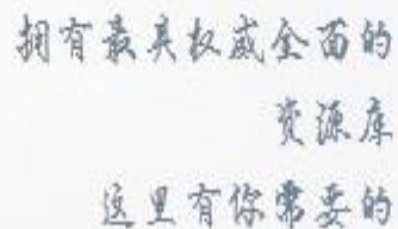 拥有最具权威全面的
资源库
这里有你需要的